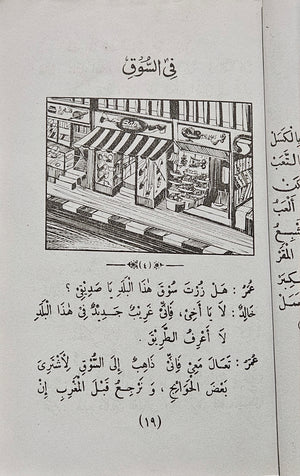 فِي السُّوْقِ
(٤)
عُمَرُ : هَلْ زُرْتَ سُوْقَ هٰذَا الْبَلَدِ يَا صَدِيْقِيْ ؟
خَالِدٌ : لَا يَا أَخِيْ، فَإِنِّيْ غَرِيْبٌ جَدِيْدٌ فِيْ هٰذَا الْبَلَدِ
لَا أَعْرِفُ الطَّرِيْقَ .
عُمَرُ : تَعَالَ مَعِيْ فَإِنِّيْ ذَاهِبٌ إِلَى السُّوْقِ لِأَشْتَرِيَ
بَعْضَ الْحَوَائِجِ ، وَ نَرْجِعُ قَبْلَ الْمَغْرِبِ إِنْ
(١٩)